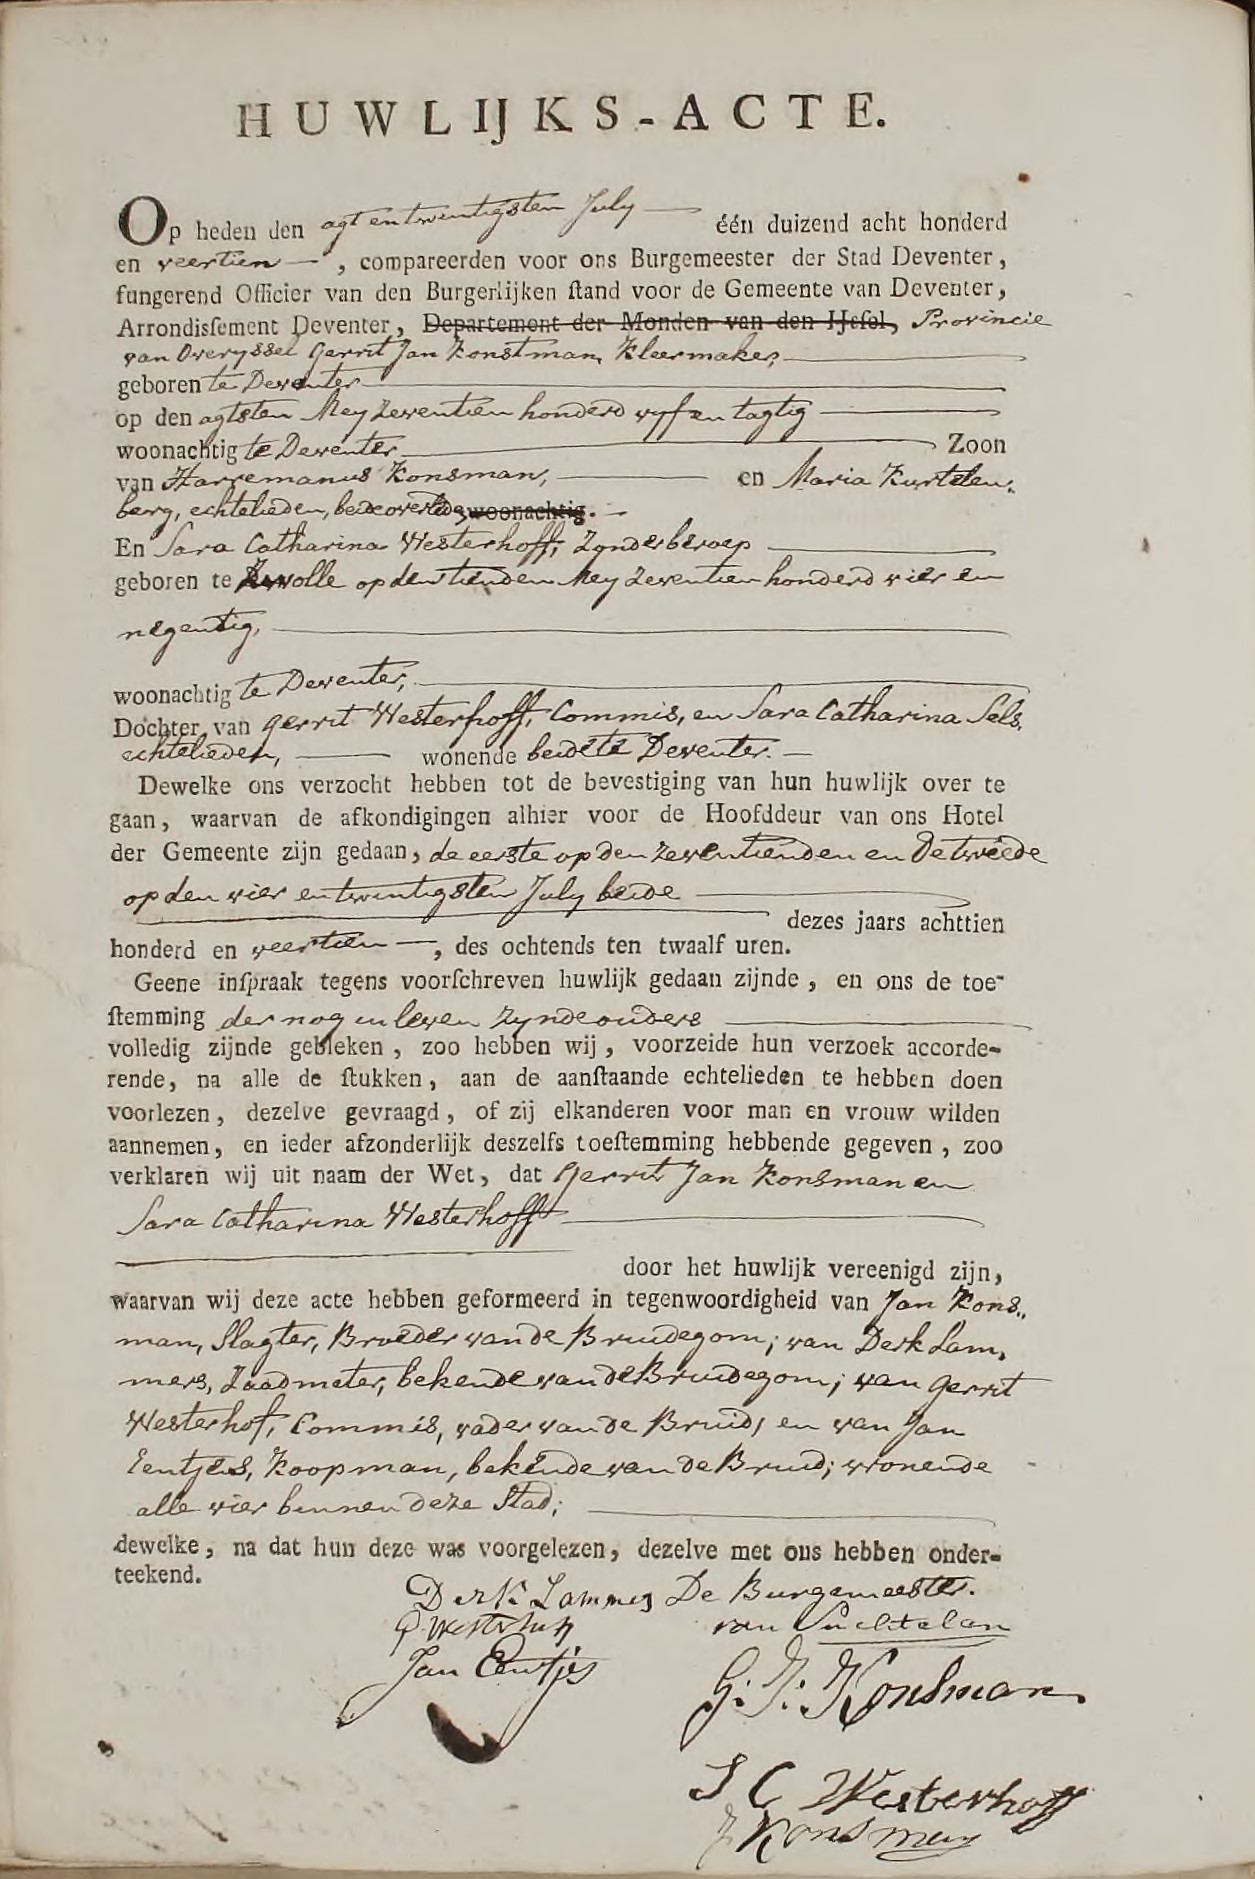 HUWLIJKS-ACTE.
Op heden den agt en twintigsten July één duizend acht honderd
en veertien, compareerden voor ons Burgemeester der Stad Deventer,
fungerend Officier van den Burgerlijken ſtand voor de Gemeente van Deventer,
Arrondisſement Deventer, Departement der Monden van den IJsſel, Provincie
van Overyssel Gerrit Jan Konstman, Kleermaker,
geboren te Deventer
op den agtsten Mey zeventien honderd vyf en tagtig
woonachtig te Deventer Zoon
van Harremanus Konsman, en Maria Kurtelen„
berg, echtelieden, beide overleden, woonachtig.
En Sara Catharina Westerhoff, Zynder beroep
geboren te Zwolle op den tienden Mey zeventien honderd vier en
negentig,
woonachtig te Deventer,
Dochter van Gerrit Westerhoff, Commis, en Sara Catharina Sels,
echtelieden, wonende beide te Deventer.
Dewelke ons verzocht hebben tot de bevestiging van hun huwlijk over te
gaan, waarvan de afkondigingen alhier voor de Hoofddeur van ons Hotel
der Gemeente zijn gedaan, de eerste op den zeventienden en de tweede
op den vier en twintigsten July beide
dezes jaars achttien
honderd en veertien, des ochtends ten twaalf uren.
Geene inſpraak tegens voorſchreven huwlijk gedaan zijnde, en ons de toe-
ſtemming der nog in leven zynde ouders
volledig zijnde gebleken, zoo hebben wij, voorzeide hun verzoek accorde-
rende, na alle de ſtukken, aan de aanſtaande echtelieden te hebben doen
voorlezen, dezelve gevraagd, of zij elkanderen voor man en vrouw wilden
aannemen, en ieder afzonderlijk deszelfs toeſtemming hebbende gegeven, zoo
verklaren wij uit naam der Wet, dat Gerrit Jan Konsman en
Sara Catharina Westerhoff
door het huwlijk vereenigd zijn,
waarvan wij deze acte hebben geformeerd in tegenwoordigheid van Jan Kons„
man, Slagter, Broeder van de Bruidegom; van Derk Lam„
mers, Zaadmeter, bekende van de Bruidegom; van Gerrit
Westerhof, Commis, vader van de Bruid, en van Jan
Eentjes, Koopman, bekende van de Bruid; wonende
alle vier binnen deze Stad;
dewelke, na dat hun deze was voorgelezen, dezelve met ons hebben onder-
teekend.
Derk Lammers De Burgemeester.
G. Westerhoff van Suchtelen
Jan Eentjes G: J: Konsman.
S C Westerhoff
J Konsman